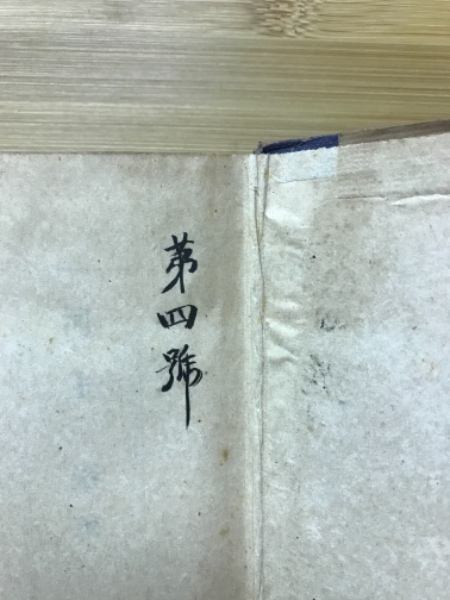 第四號